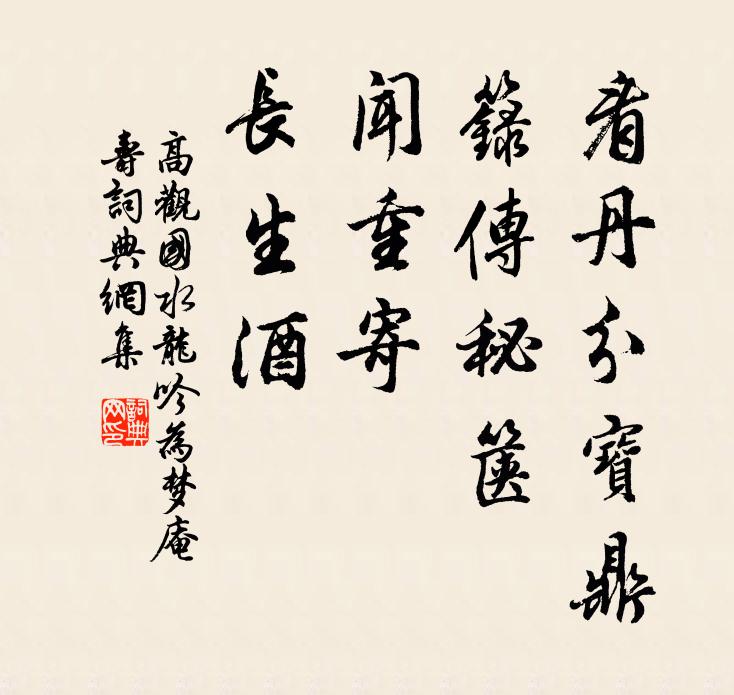 看丹分寶鼎
籙傳秘篋
聞重寄
長生酒
高觀國水龍吟為梦庵
壽詞典網集
詞典
网印